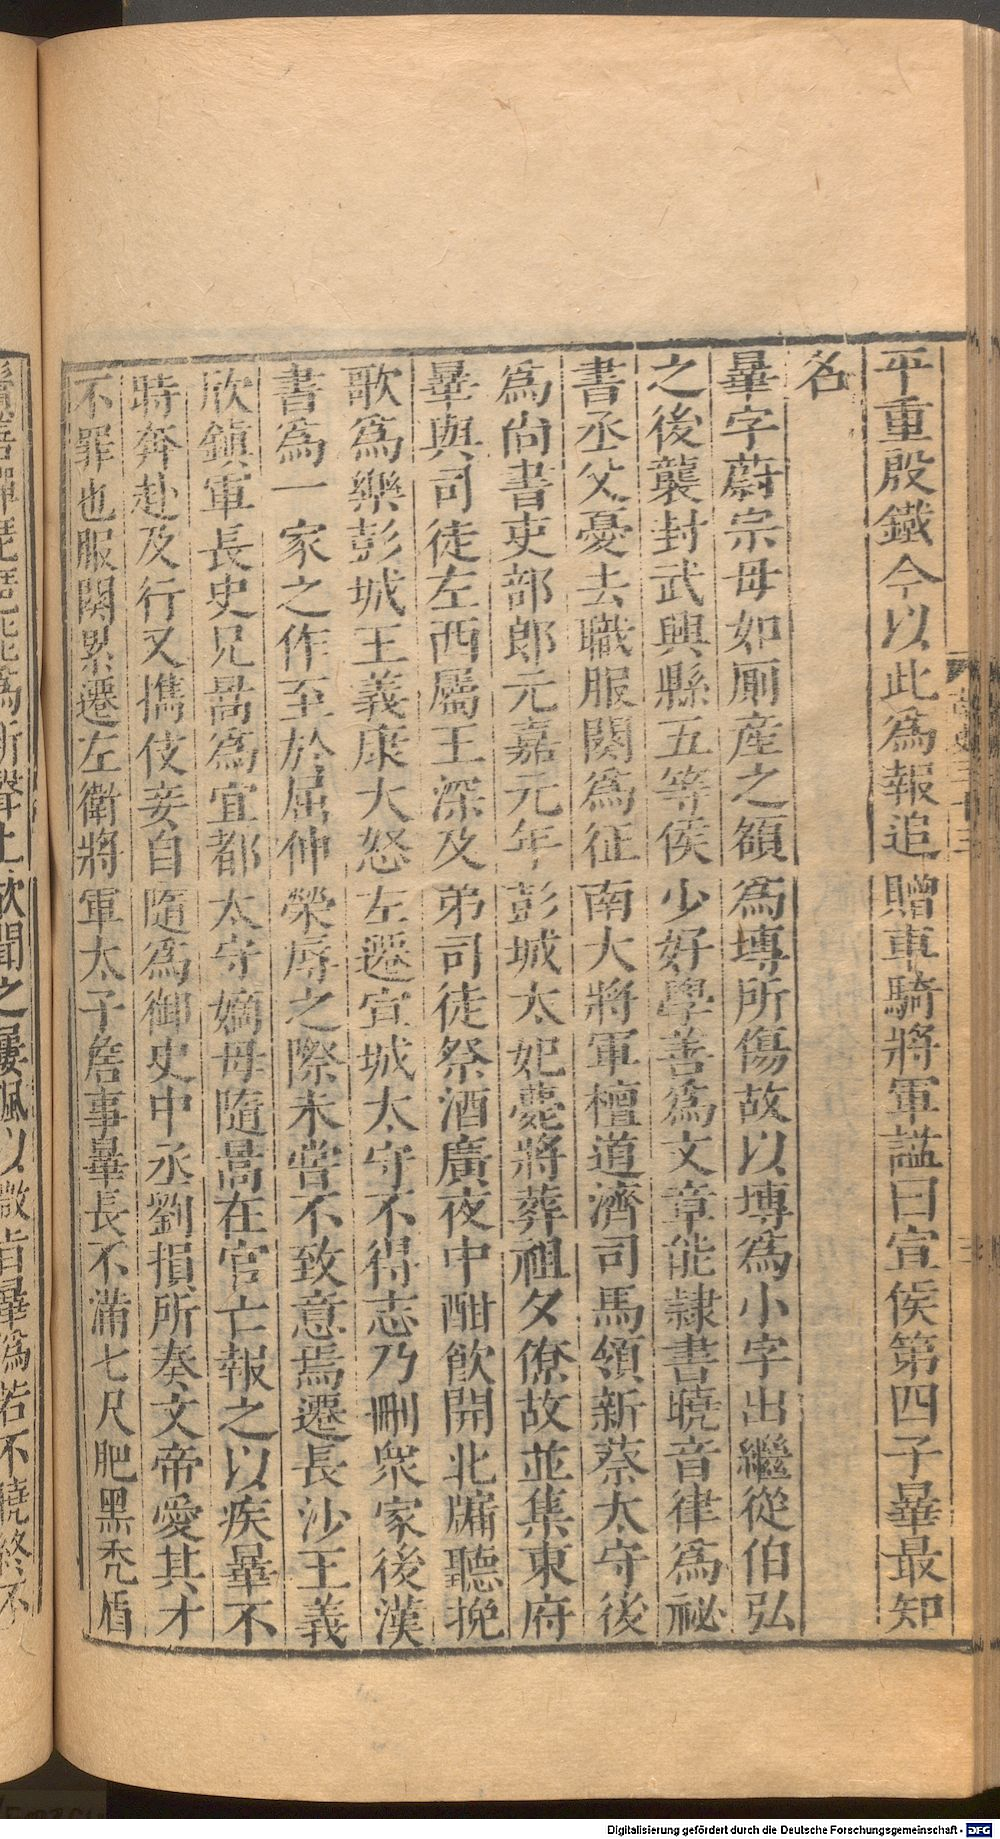 平重殷鐵今以此為報追贈車騎將軍謚曰宣侯第四子曅最知
名
曅字蔚宗母如廁產之額為塼所傷故以塼為小字出繼從伯弘
之後襲封武興縣五等侯少好學善為文章能隸書曉音律為祕
書丞父憂去職服闋為征南大將軍檀道濟司馬領新蔡太守後
為尚書吏部郎元嘉元年彭城太妃薨將葬祖夕僚故並集東府
曅與司徒左西屬王深及弟司徒祭酒廣夜中酣飲開北牖聽挽
歌為樂彭城王義康大怒左遷宣城太守不得志乃刪眾家後漢
書為一家之作至於屈伸榮辱之際未嘗不致意焉遷長沙王義
欣鎮軍長史兄暠為宜都太守嫡母隨暠在官亡報之以疾曅不
時奔赴及行又攜伎妾自隨為御史中丞劉損所奏文帝愛其才
不罪也服闋累遷左衛將軍太子詹事曅長不滿七尺肥黑禿眉
鬢善彈琵琶能為新聲上欲聞之屢諷以微旨曅為若不曉終不
Digitalisierung gefördert durch die Deutsche Forschungsgemeinschaft - DFG